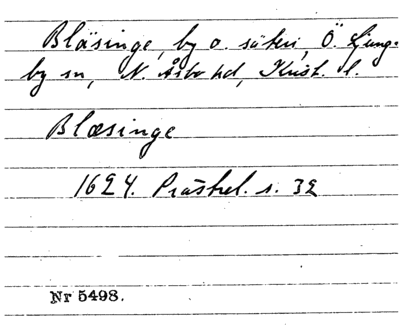 Bläsinge, by o. säteri, Ö. Ljung-
by sn, N. Åsbo hd, Krist. l.
Blæsinge
1624. Prästrel. s. 32
Nr 5498.